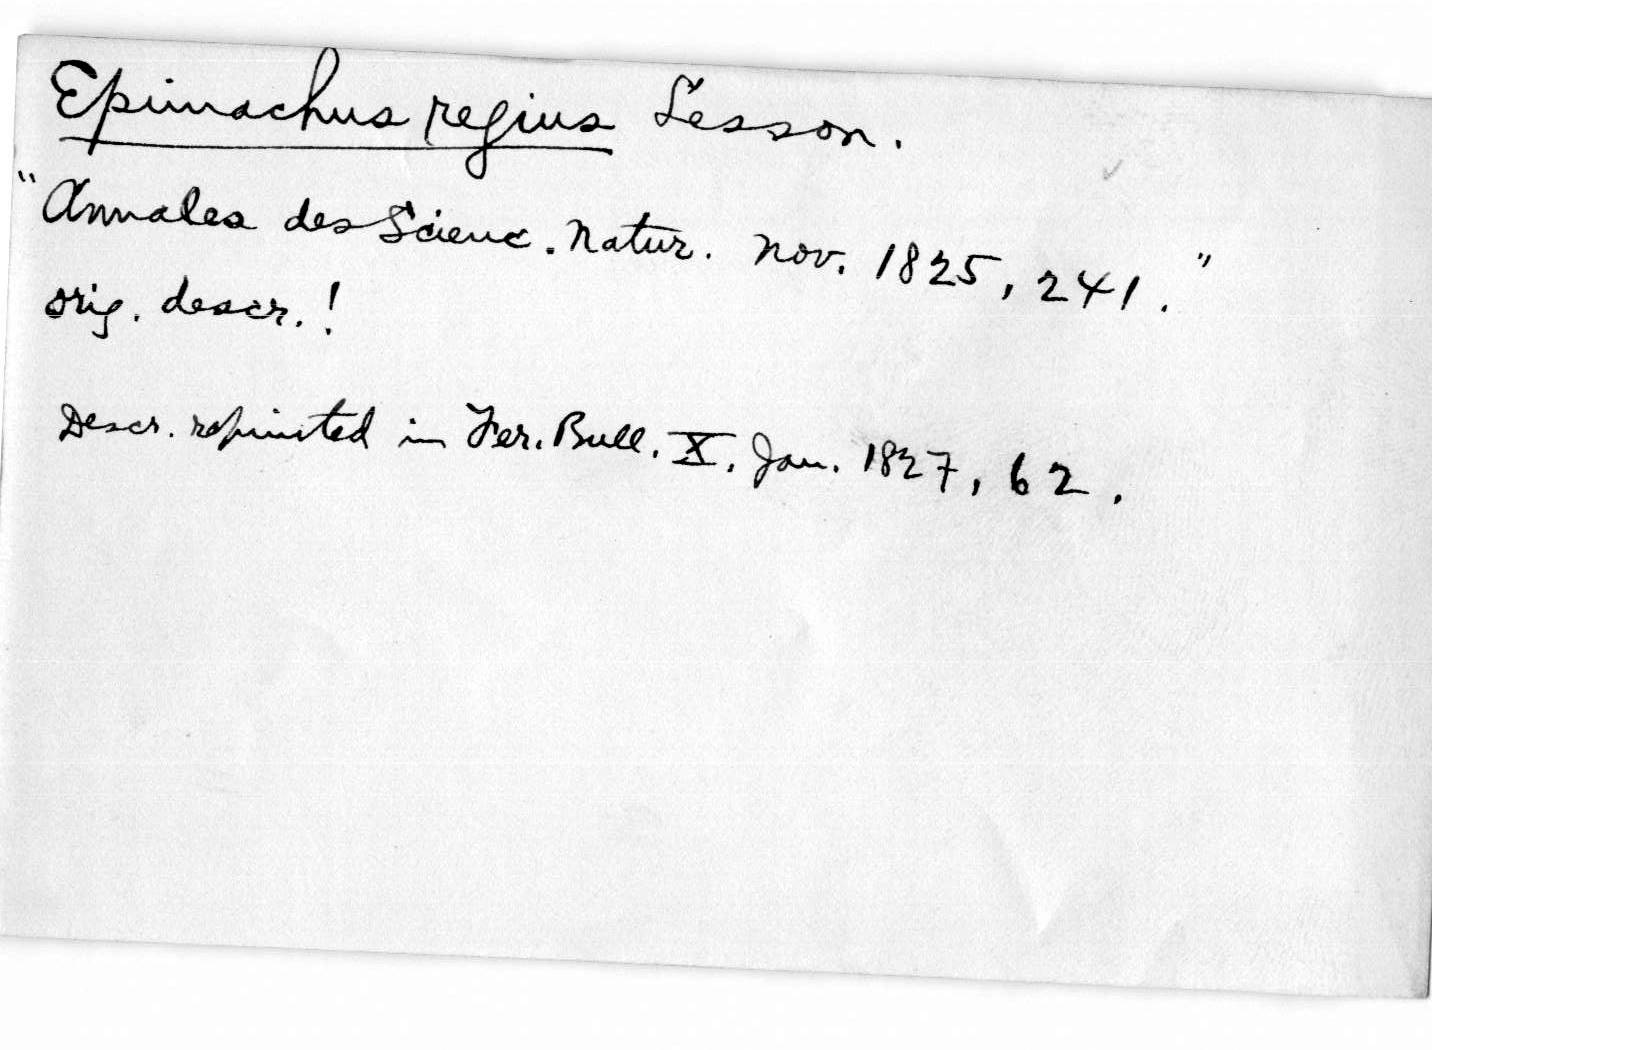 Epimachus regius Lesson.
"Annales des Scienc. Natur. Nov. 1825, 241."
orig. descr.!
Descr. reprinted in Fer. Bull. X. Jan. 1827, 62.